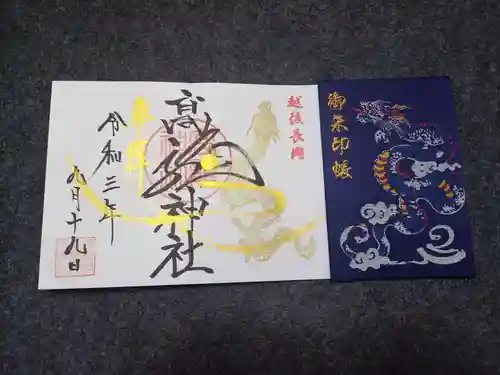 越後長岡
高龍神社
奉拝
令和三年
九月十九日
御朱印帳